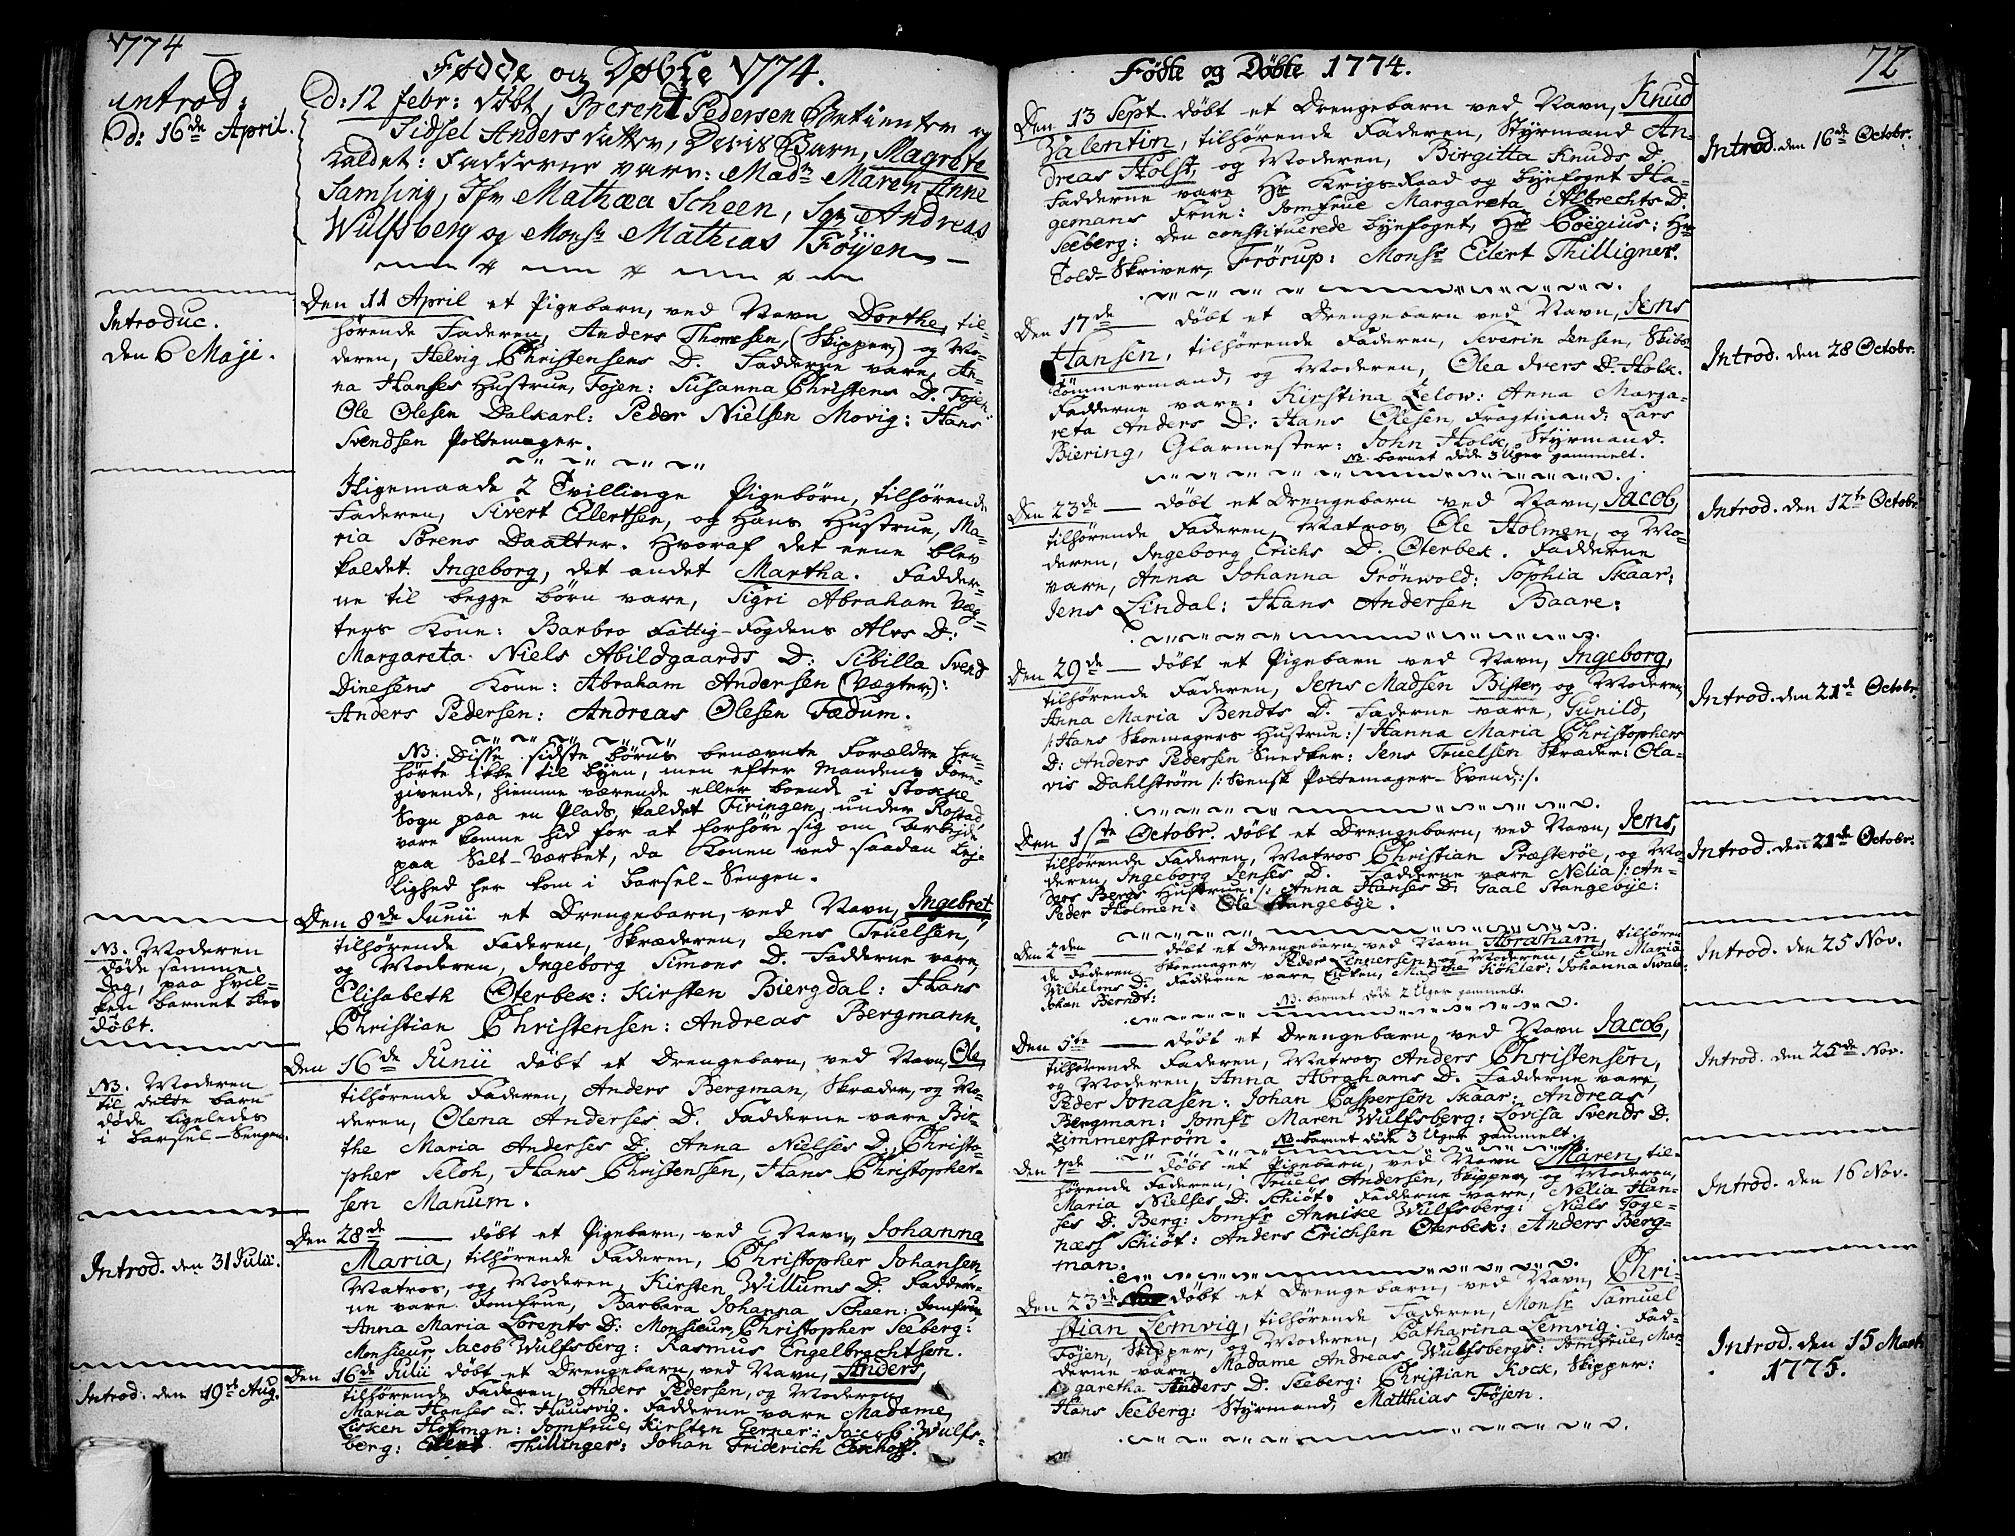 1774
Fødde og Døbte 1774.
Introd:
D: 16de April.
D: 12 febr: døbt, Berent Pedersen Betienter og
Sidsel Anders datter, Deris Barn, Magrete
kaldet: Fadderne vare: Madm Maren Anne
Samsing, Jfr Mathæa Scheen, Sr Andreas
Wulfsberg og Monsr Mathias Føyen
Introduc.
den 6 Maje.
Den 11 April et Pigebarn, ved Navn Dorthe, til-
hørende Faderen, Anders Thomesen, (Skipper,) og Mo-
deren, Helvig Christensens D. Fadderne vare, An-
na Hanses Hustrue, Føjen: Susanna Christens D. Føjen:
Ole Olesen Dalkarl: Peder Nielsen Movig: Hans
Svendsen Pottemager.
Ligemaade 2 Tvillinge Pigebørn, tilhørende
Faderen, Sivert Eilertsen, og Hans Hustrue, Ma-
ria Sørens Daatter. Hvoraf det eene blev
kaldet Ingeborg, det andet Martha. Fadder-
ne til begge børn vare, Sigri Abraham Væg-
ters Kone: Barbro Fattig-Fogdens Alvs D:
Margareta Niels Abildgaards D: Sibilla Svend
Dinesens Kone: Abraham Andersen (Vægter):
Anders Pedersen: Andreas Olesen Fædum.
NB. Disse sidste børns benævnte Forældre hen-
hørte ikke til byen, men efter Mandens Fore-
givende, hiemme værende eller boende i Stokke
Sogn paa en Plads, kaldet Firingen, under Rostad,
vare komne hid for at forhøre sig om Arbejde
paa Salt-Værket, da Konen ved saadan Leje
lighed her kom i barsel-Sengen.
NB. Moderen
døde samme
Dag, paa hvil-
ken barnet blev
døbt.
Den 8de Junii et Drengebarn, ved Navn, Ingebret,
tilhørende Faderen, Skræderen, Jens Truelsen,
og Moderen, Ingeborg Simons D. Fadderne vare,
Elisabeth Oterbek: Kirsten Biergdal: Hans
Christian Christensen: Andreas Bergmann.
NB. Moderen
til dette barn
døde ligeledes
i barsel-Sengen.
Den 16de Junii døbt et Drengebarn, ved Navn, Ole,
tilhørende Faderen, Anders Bergman, Skræder, og Mo-
deren, Olena Anderses D. Fadderne vare Bir-
the Maria Anderses D, Anna Nielses D, Christo-
pher Seloh, Hans Christenssen, Hans Christopher-
sen Manum.
Introd. den 31 Julii.
Den 28de døbt et Pigebarn, ved Navn, Johanna
Maria, tilhørende Faderen, Christopher Johansen
Matros, og Moderen, Kirsten Willums D. Fadder-
ne vare Jomfrue, Barbara Johanna Scheen: Jomfrue
Anna Maria Lorents D: Monsieur, Christopher Seeberg:
Monsieur, Jacob Wulfsberg: Rasmus Engelbrechtsen.
Introd. den 19de Aug.
Den 16de Julii døbt et Drengebarn, ved Navn, Anders,
tilhørende Faderen, Anders Pedersen, og Moderen,
Maria Hanses D. Huusvig. Fadderne vare Madame,
Lisken Hofman: Jomfrue, Kirsten Gerner: Jacob Wulfs-
berg: Eilert Thillinger: Johan Friderich
72
Fødte og Døbte 1774.
Den 13 Sept. døbt et Drengebarn ved Navn, Knud
Valentin, tilhørende Faderen, Styrmand An-
dreas Holst, og Moderen, Birgitta Knuds D.
Fadderne vare Hr Krigs-Raad og byefoget Ha-
gemans Frue: Jomfrue Margareta Albrechts D.
Seeberg: den constituerede byefoget, Hr Coëgius: Hr
Told-Skriver, Frørup: Monsr Eilert Thilligner.
Introd. den 16de Octobr.
Den 17de døbt et Drengebarn ved Navn, Jens
Hansen, tilhørende Faderen, Severin Jensen, Skibs-
Tømmermand, og Moderen, Olea Ivers D. Holk.
Fadderne vare: Kirstina Zelow: Anna Marga-
reta Anders D: Hans Olesen, Fragtmand: Lars
Biering, Glarmester: John Holk, Styrmand.
NB. barnet døde 3 Uger gammelt.
Introd. den 28 Octobr.
Den 23de døbt et Drengebarn ved Navn, Jacob,
tilhørende Faderen, Matros, Ole Holmen, og Mo-
deren, Ingeborg Erichs D. Oterbek. Fadderne
vare, Anna Johanna Grönwold: Sophia Skaar:
Jens Lindal: Hans Andersen Baare:
Introd. den 12te Octobr.
Den 29de døbt et Pigebarn ved Navn, Ingeborg,
tilhørende Faderen, Jens Madsen Bister, og Moderen,
Anna Maria Bendts D. Fadderne vare, Gunild,
/: Hans Skoemagers Hustrue :/ Hanna Maria Christophers
D: Anders Pedersen Snedker: Jens Truelsen Skræder: Ola-
vis Dahlstrøm /: Svensk Pottemager-Svend :/.
Introd. den 21de Octobr.
Den 1ste Octobr. døbt et Drengebarn, ved Navn, Jens,
tilhørende Faderen, Matros Christian Præsterøe, og Mo-
deren, Ingeborg Jenses D. Fadderne vare Nelia /: An-
ders Bergs Hustrue :/: Anna Hanses D: Gaal Stangebye:
Peder Holmen: Ole Stangebye.
Introd. den 21de Octobr.
Den 2den døbt et Drengebarn, ved Navn Abraham, tilhøren
de Faderen, Skoemager, Peder Linnersen, og Moderen, Elen Maria
Wilhelms D. Fadderne vare Eicken, Köhler: Johanna
Johan Berndt:
NB. barnet døde 2 Uger gammelt.
Introd. den 25 Nov.
Den 5te døbt et Drengebarn, ved Navn Jacob,
tilhørende Faderen, Matros, Anders Christensen,
og Moderen, Anna Abrahams D. Fadderne vare,
Peder Jonasen: Johan Caspersen Skaar: Andreas
Bergman: Jomfr Maren Wulfsberg: Lovisa Svends D.
Zimmerstrøm. NB barnet døde 3 Uger gammelt.
Introd. den 25de Nov.
Den 7de døbt et Pigebarn, ved Navn Maren, til-
hørende Faderen, Truels Andersen, Skipper, og Moderen,
Maria Nielses D. Schiöt. Fadderne vare, Nelia Han-
ses D. Berg: Jomfr Annike Wulfsberg: Niels Toge-
næss Schiöt: Anders Erichsen Oterbek: Anders Berg-
man.
Introd. den 16 Nov.
Den 23de døbt et Drengebarn, ved Navn, Chri-
stian Lemvig, tilhørende Faderen, Monsr Samuel
Føjen, Skipper, og Moderen, Catharina Lemvig. Fad-
derne vare, Madame Andreas Wulfsbergs: Jomfrue, Mar-
garetha Anders D. Seeberg: Christian Kock, Skipper:
Hans Seeberg: Styrmand Matthias Føjen.
Introd. den 15 Marti
1775.